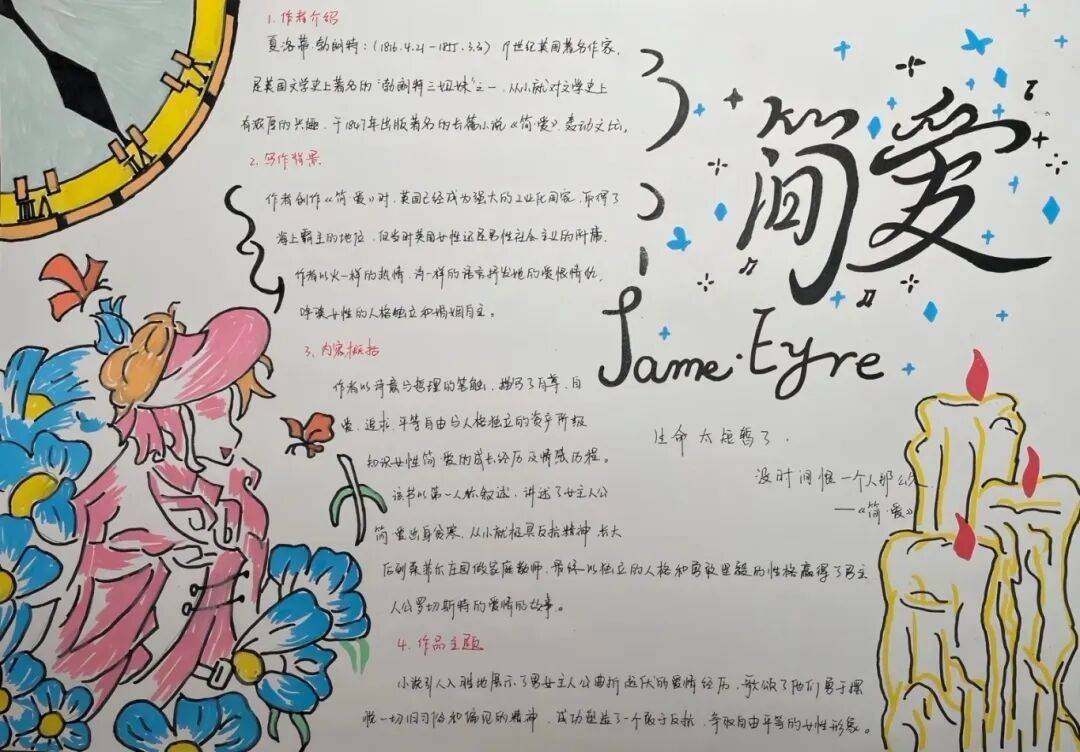 1. 作者介绍
夏洛蒂·勃朗特:(1816.4.21-1855.3.31) 19世纪英国著名作家,
是英国文学史上著名的“勃朗特三姐妹”之一,从小就对文学史上
有浓厚的兴趣,于1847年出版著名的长篇小说《简·爱》,轰动文坛。
2. 写作背景
作者创作《简·爱》时,英国已经成为强大的工业化国家,取得了
海上霸主的地位,但当时英国女性还是男性社会主义的附庸,
作者以火一样的热情,诗一样的语言抒发她的爱恨情仇,
呼唤女性的人格独立和婚姻自主。
3. 内容概括
作者以诗意与哲理的笔触,描写了自尊、自
爱、追求平等自由与人格独立的资产阶级
知识女性简·爱的成长经历及情感历程。
该书以第一人称叙述,讲述了女主人公
简·爱出身贫寒,从小就极具反抗精神,长大
后到桑菲尔庄园做家庭教师,最终以独立的人格和勇敢坚毅的性格赢得了男主
人公罗切斯特的爱情的故事。
4. 作品主题
小说引人入胜地展示了男女主人公曲折起伏的爱情经历,歌颂了他们勇于摆
脱一切旧习俗和偏见的精神,成功塑造了一个敢于反抗,争取自由平等的女性形象。
简爱
Jame·Eyre
生命太短暂了,
没时间恨一个人那么
—《简·爱》
VI
VII